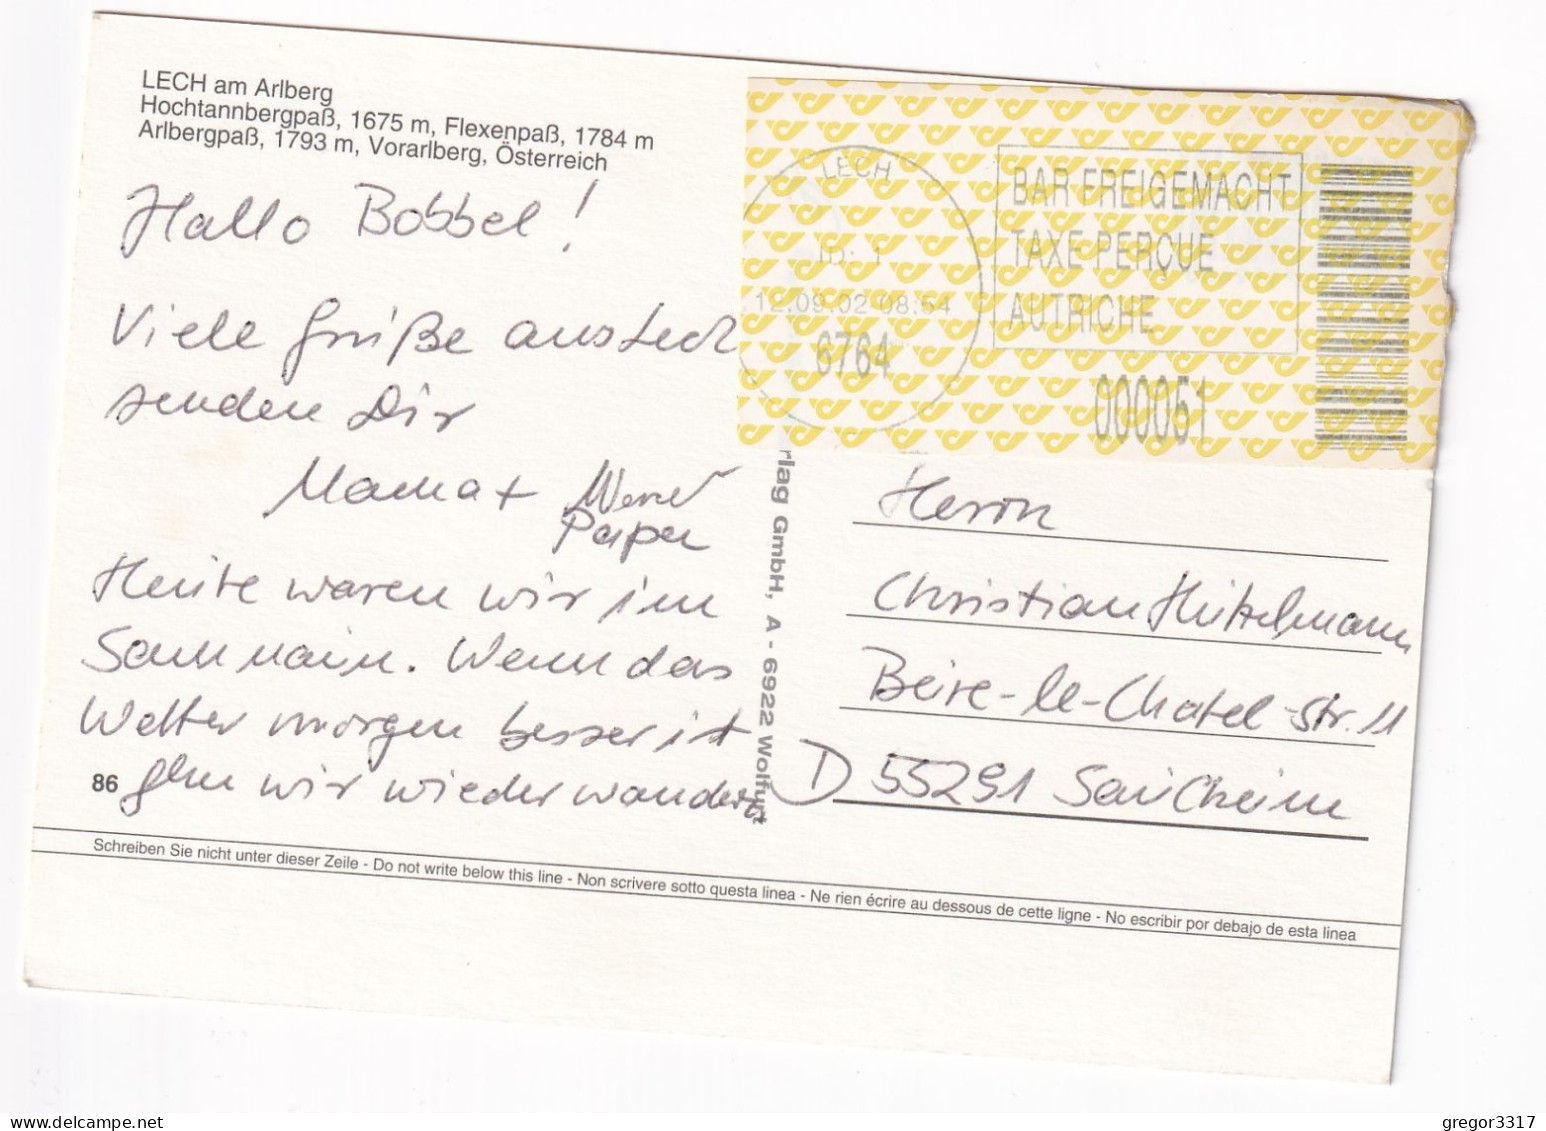 LECH am Arlberg
Hochtannbergpaß, 1675 m, Flexenpaß, 1784 m
Arlbergpaß, 1793 m, Vorarlberg, Österreich
Hallo Bobbel!
Viele Grüße aus Lech
senden Dir
Mama +
Papa
Heute waren wir im
Samnaun. Wenn das
Wetter morgen besser ist
gehn wir wieder wandern
86
LECH
ID: 1
12.09.02-08:54
6764
BAR FREIGEMACHT
TAXE PERÇUE
AUTRICHE
000051
rlag GmbH, A - 6922 Wolfurt
Herrn
Christian
Beire-le-Chatel-Str. 11
D 55291 Saulheim
Schreiben Sie nicht unter dieser Zeile - Do not write below this line - Non scrivere sotto questa linea - Ne rien écrire au dessous de cette ligne - No escribir por debajo de esta linea
delcampe.net
gregor3317